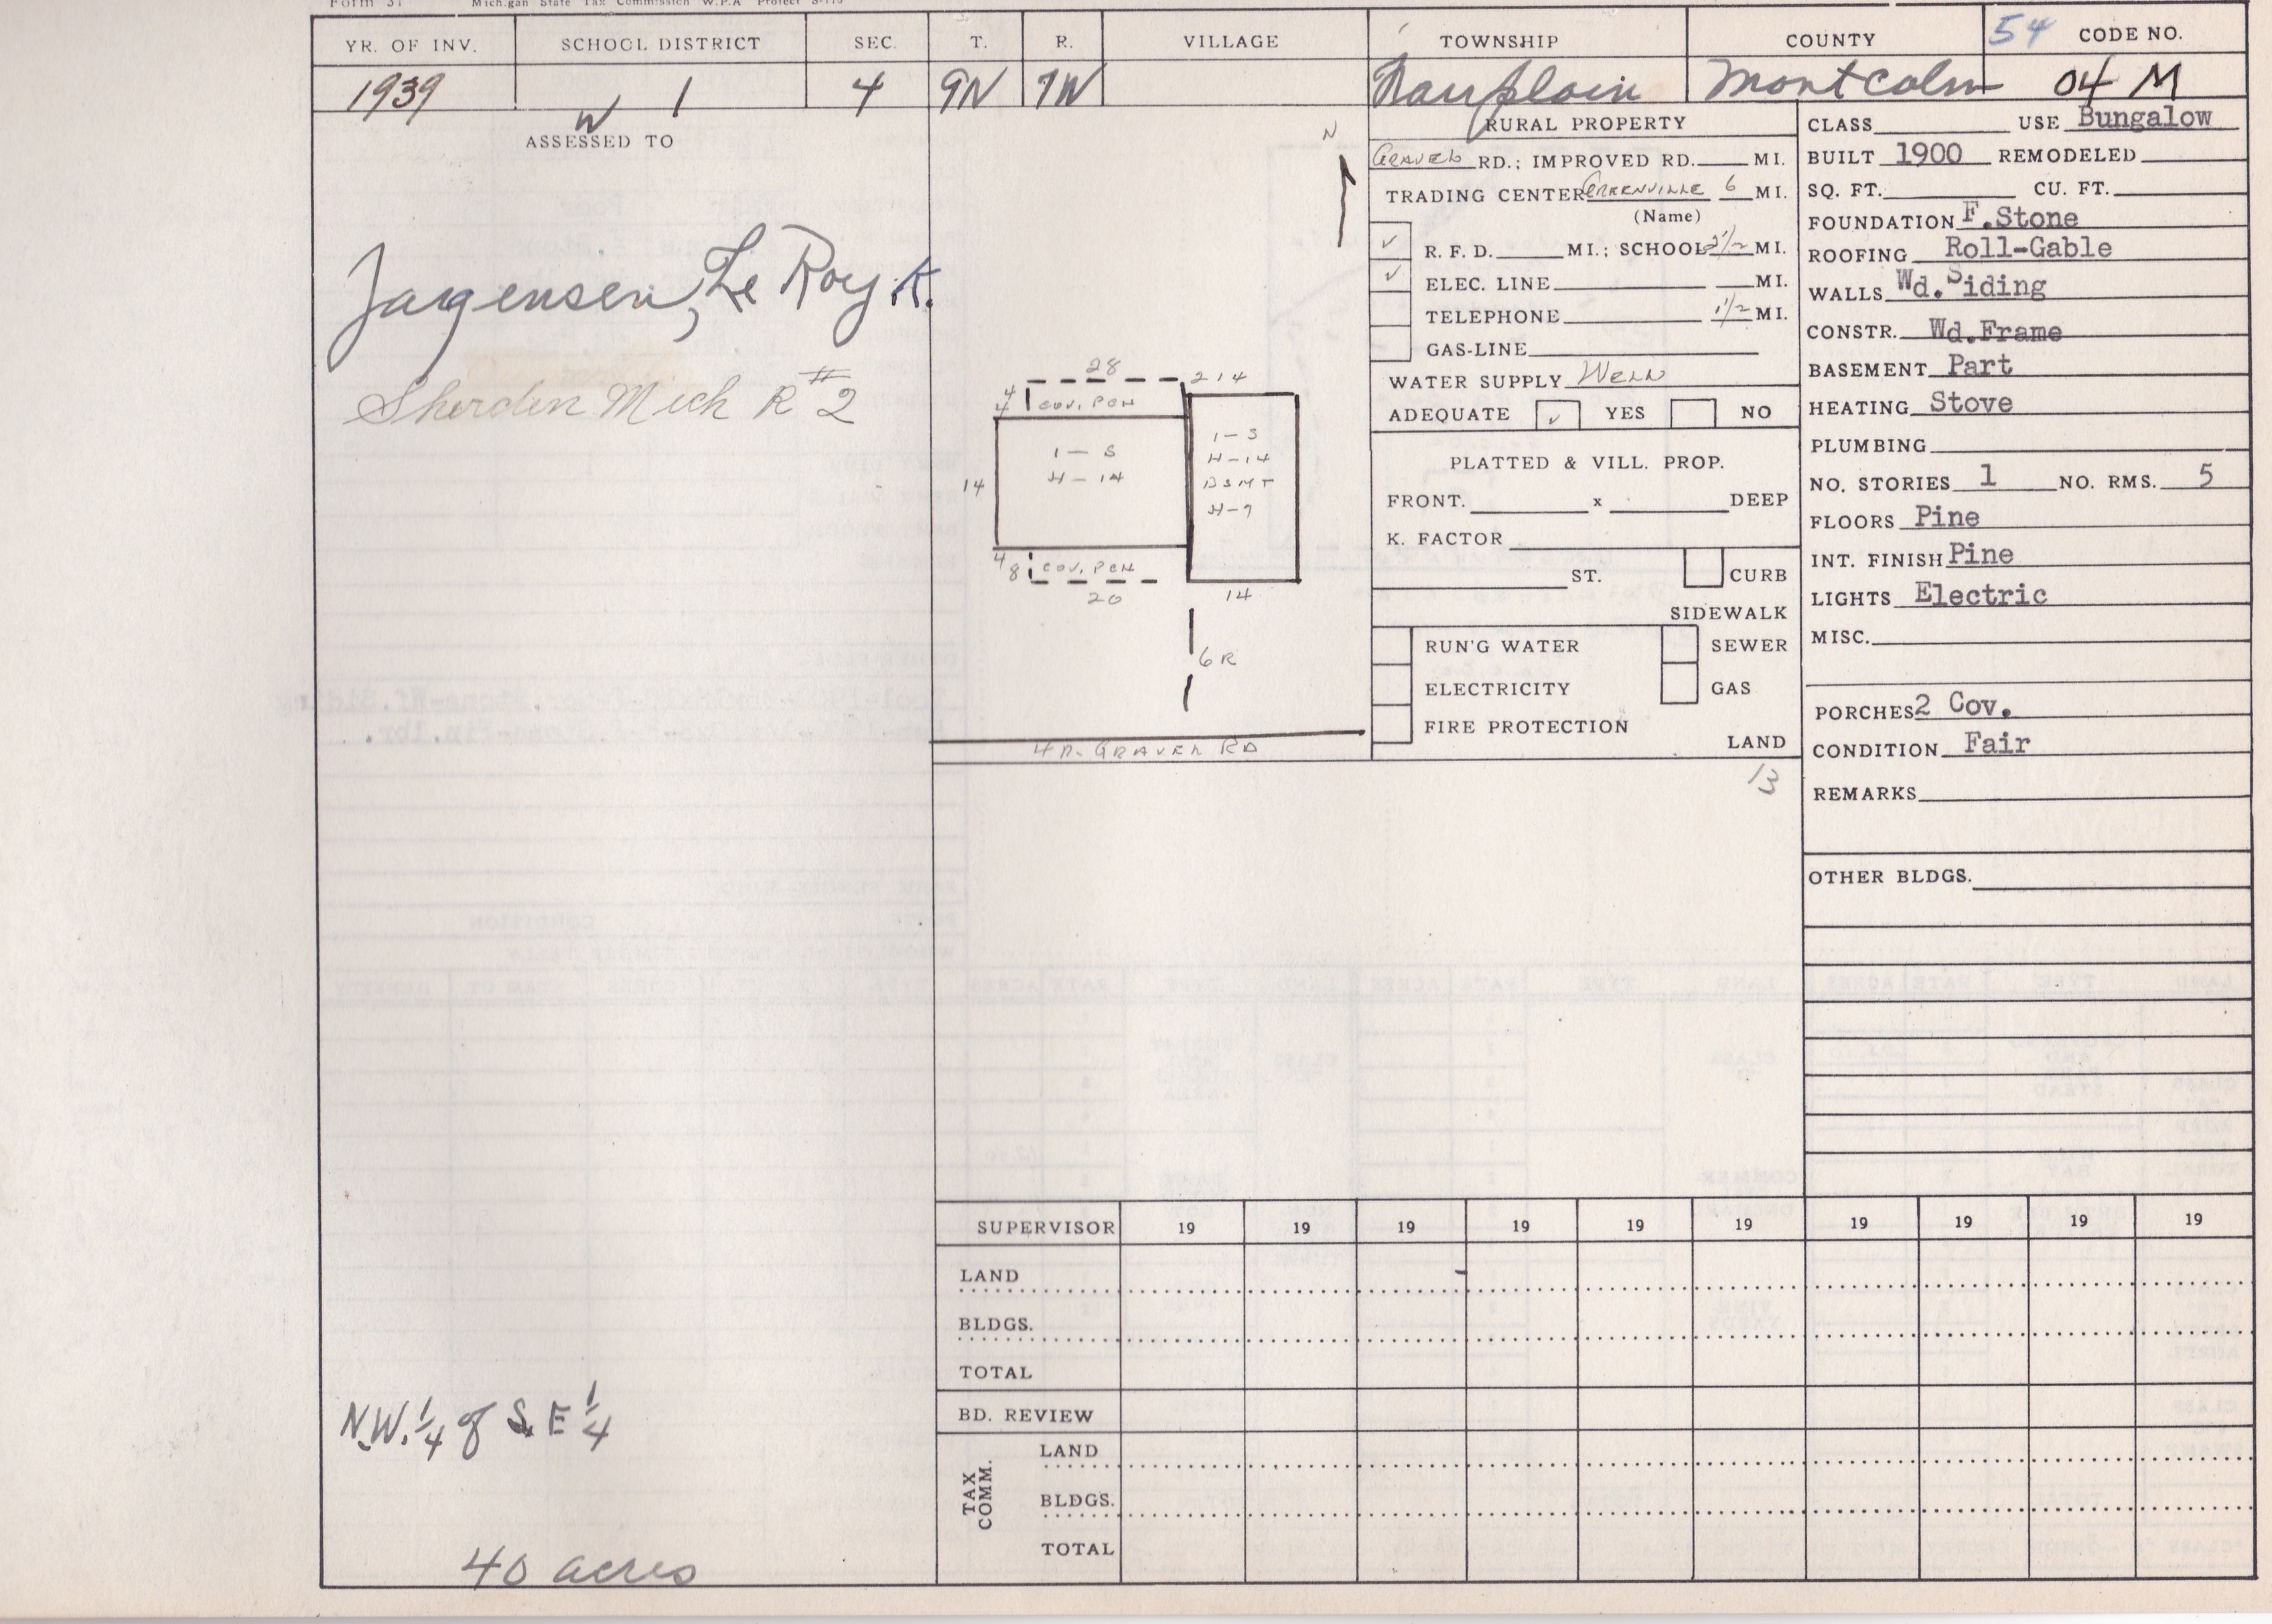 Form 31 Michigan State Tax Commission W.P.A Project S-113
YR. OF INV. SCHOOL DISTRICT SEC. T. R. VILLAGE TOWNSHIP COUNTY 54 CODE NO.
1939 W 1 4 9N 7W Fairplain Montcalm 04 M
ASSESSED TO
Jorgensen, Le Roy K.
Sheridan Mich R#2
N.W. 1/4 of S.E 1/4
40 acres
N
28
214
4
COV. PCH
1-S
H-14
14
1-S
H-14
BSMT
H-7
4
8
COV. PCH
20
14
6R
4R. GRAVEL RD
RURAL PROPERTY
GRAVEL RD.; IMPROVED RD. MI.
TRADING CENTER GREENVILLE 6 MI.
(Name)
✓ R. F. D. MI.; SCHOOL 2 1/2 MI.
✓ ELEC. LINE MI.
TELEPHONE 1/2 MI.
GAS-LINE
WATER SUPPLY WELL
ADEQUATE ✓ YES NO
PLATTED & VILL. PROP.
FRONT. x DEEP
K. FACTOR
ST. CURB
SIDEWALK
RUN'G WATER SEWER
ELECTRICITY GAS
FIRE PROTECTION
LAND
13
CLASS USE Bungalow
BUILT 1900 REMODELED
SQ. FT. CU. FT.
FOUNDATION F.Stone
ROOFING Roll-Gable
WALLS Wd.Siding
CONSTR. Wd.Frame
BASEMENT Part
HEATING Stove
PLUMBING
NO. STORIES 1 NO. RMS. 5
FLOORS Pine
INT. FINISH Pine
LIGHTS Electric
MISC.
PORCHES 2 Cov.
CONDITION Fair
REMARKS
OTHER BLDGS.
SUPERVISOR 19 19 19 19 19 19 19 19 19 19
LAND
BLDGS.
TOTAL
BD. REVIEW
TAX COMM.
LAND
BLDGS.
TOTAL